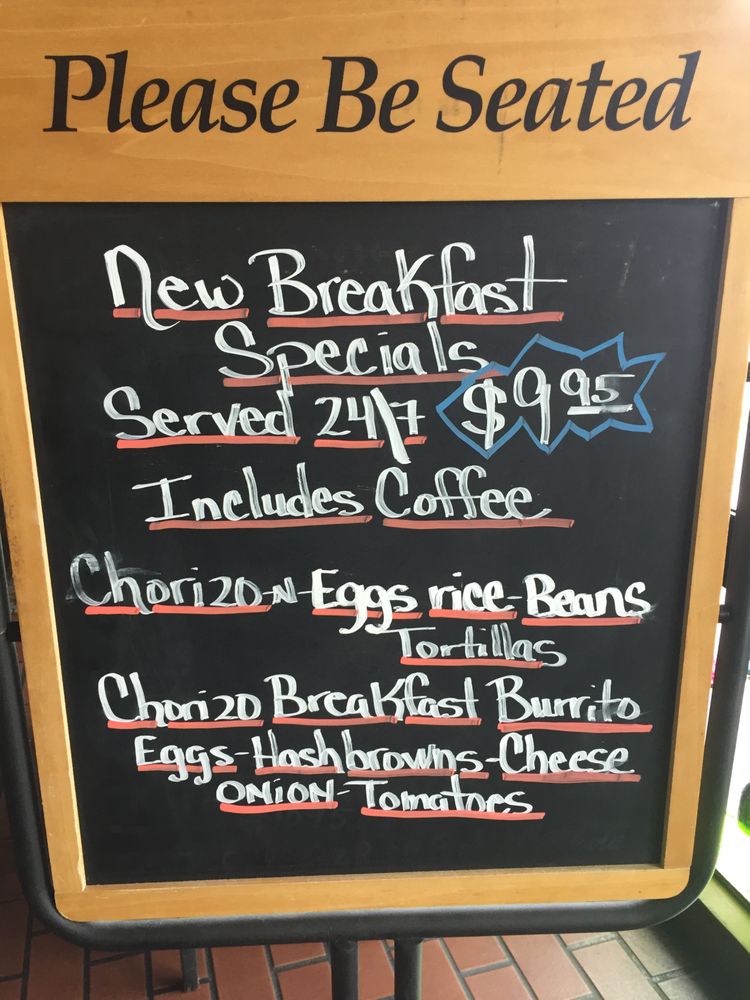 Please Be Seated
New Breakfast
Specials
Served 24\7 $9.95
Includes Coffee
Chorizo N Eggs rice-Beans
Tortillas
Chorizo Breakfast Burrito
Eggs-Hashbrowns-Cheese
ONION-Tomatoes